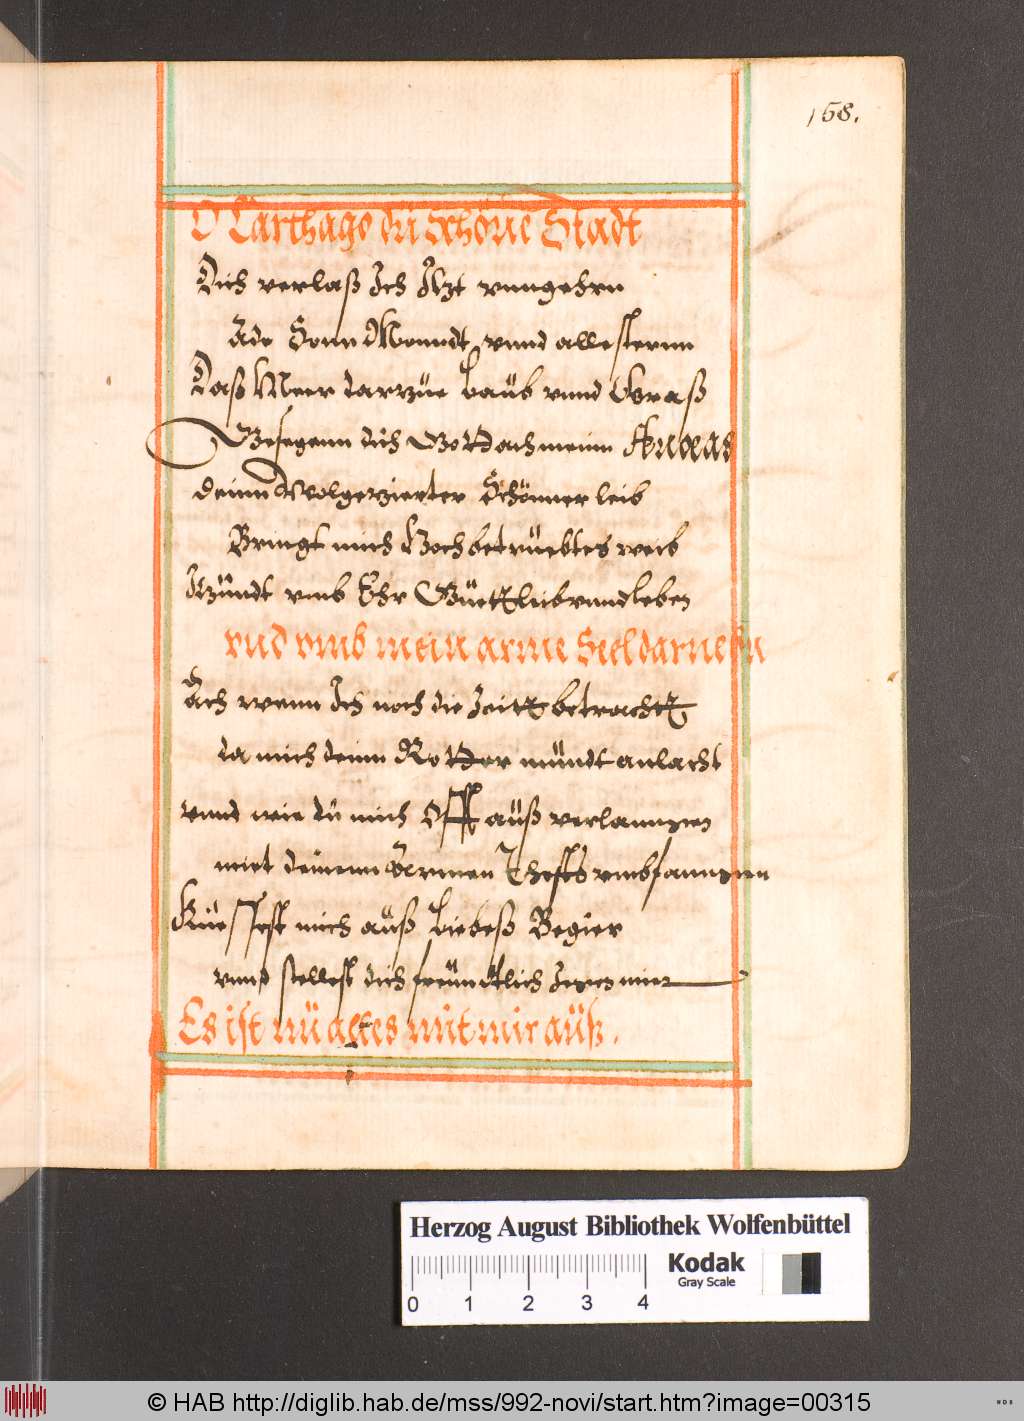 158.
O Carthago dü Schöne Stadt
Dich verlaß Ich Itzt vnngehrn
Ade Sonn Monndt vnnd alle sternn
Daß Meer darzüe Laüb vnnd Graß
Gesegenn dich Gott ach meinn Æneas
deinn Wolgezierter Schönner leib
Bringt mich Hochbetrüebtes weib
Itzündt vmb Ehr Güett leib vnnd leben
vnd vmb mein arme Seel darnebn
Ach wenn Ich noch die Zeitt betracht
da mich deinn Rotter mündt anlacht
vnnd wie dü mich Offt auß verlanngen
miet deinenn Armen vmbfanngen
Küessest mich auß Liebeß Begier
vnnd stellest dich freündtlich gegen mier
Es ist nü alles mit mir aüß.
Herzog August Bibliothek Wolfenbüttel
Kodak
Gray Scale
0 1 2 3 4
© HAB http://diglib.hab.de/mss/992-novi/start.htm?image=00315